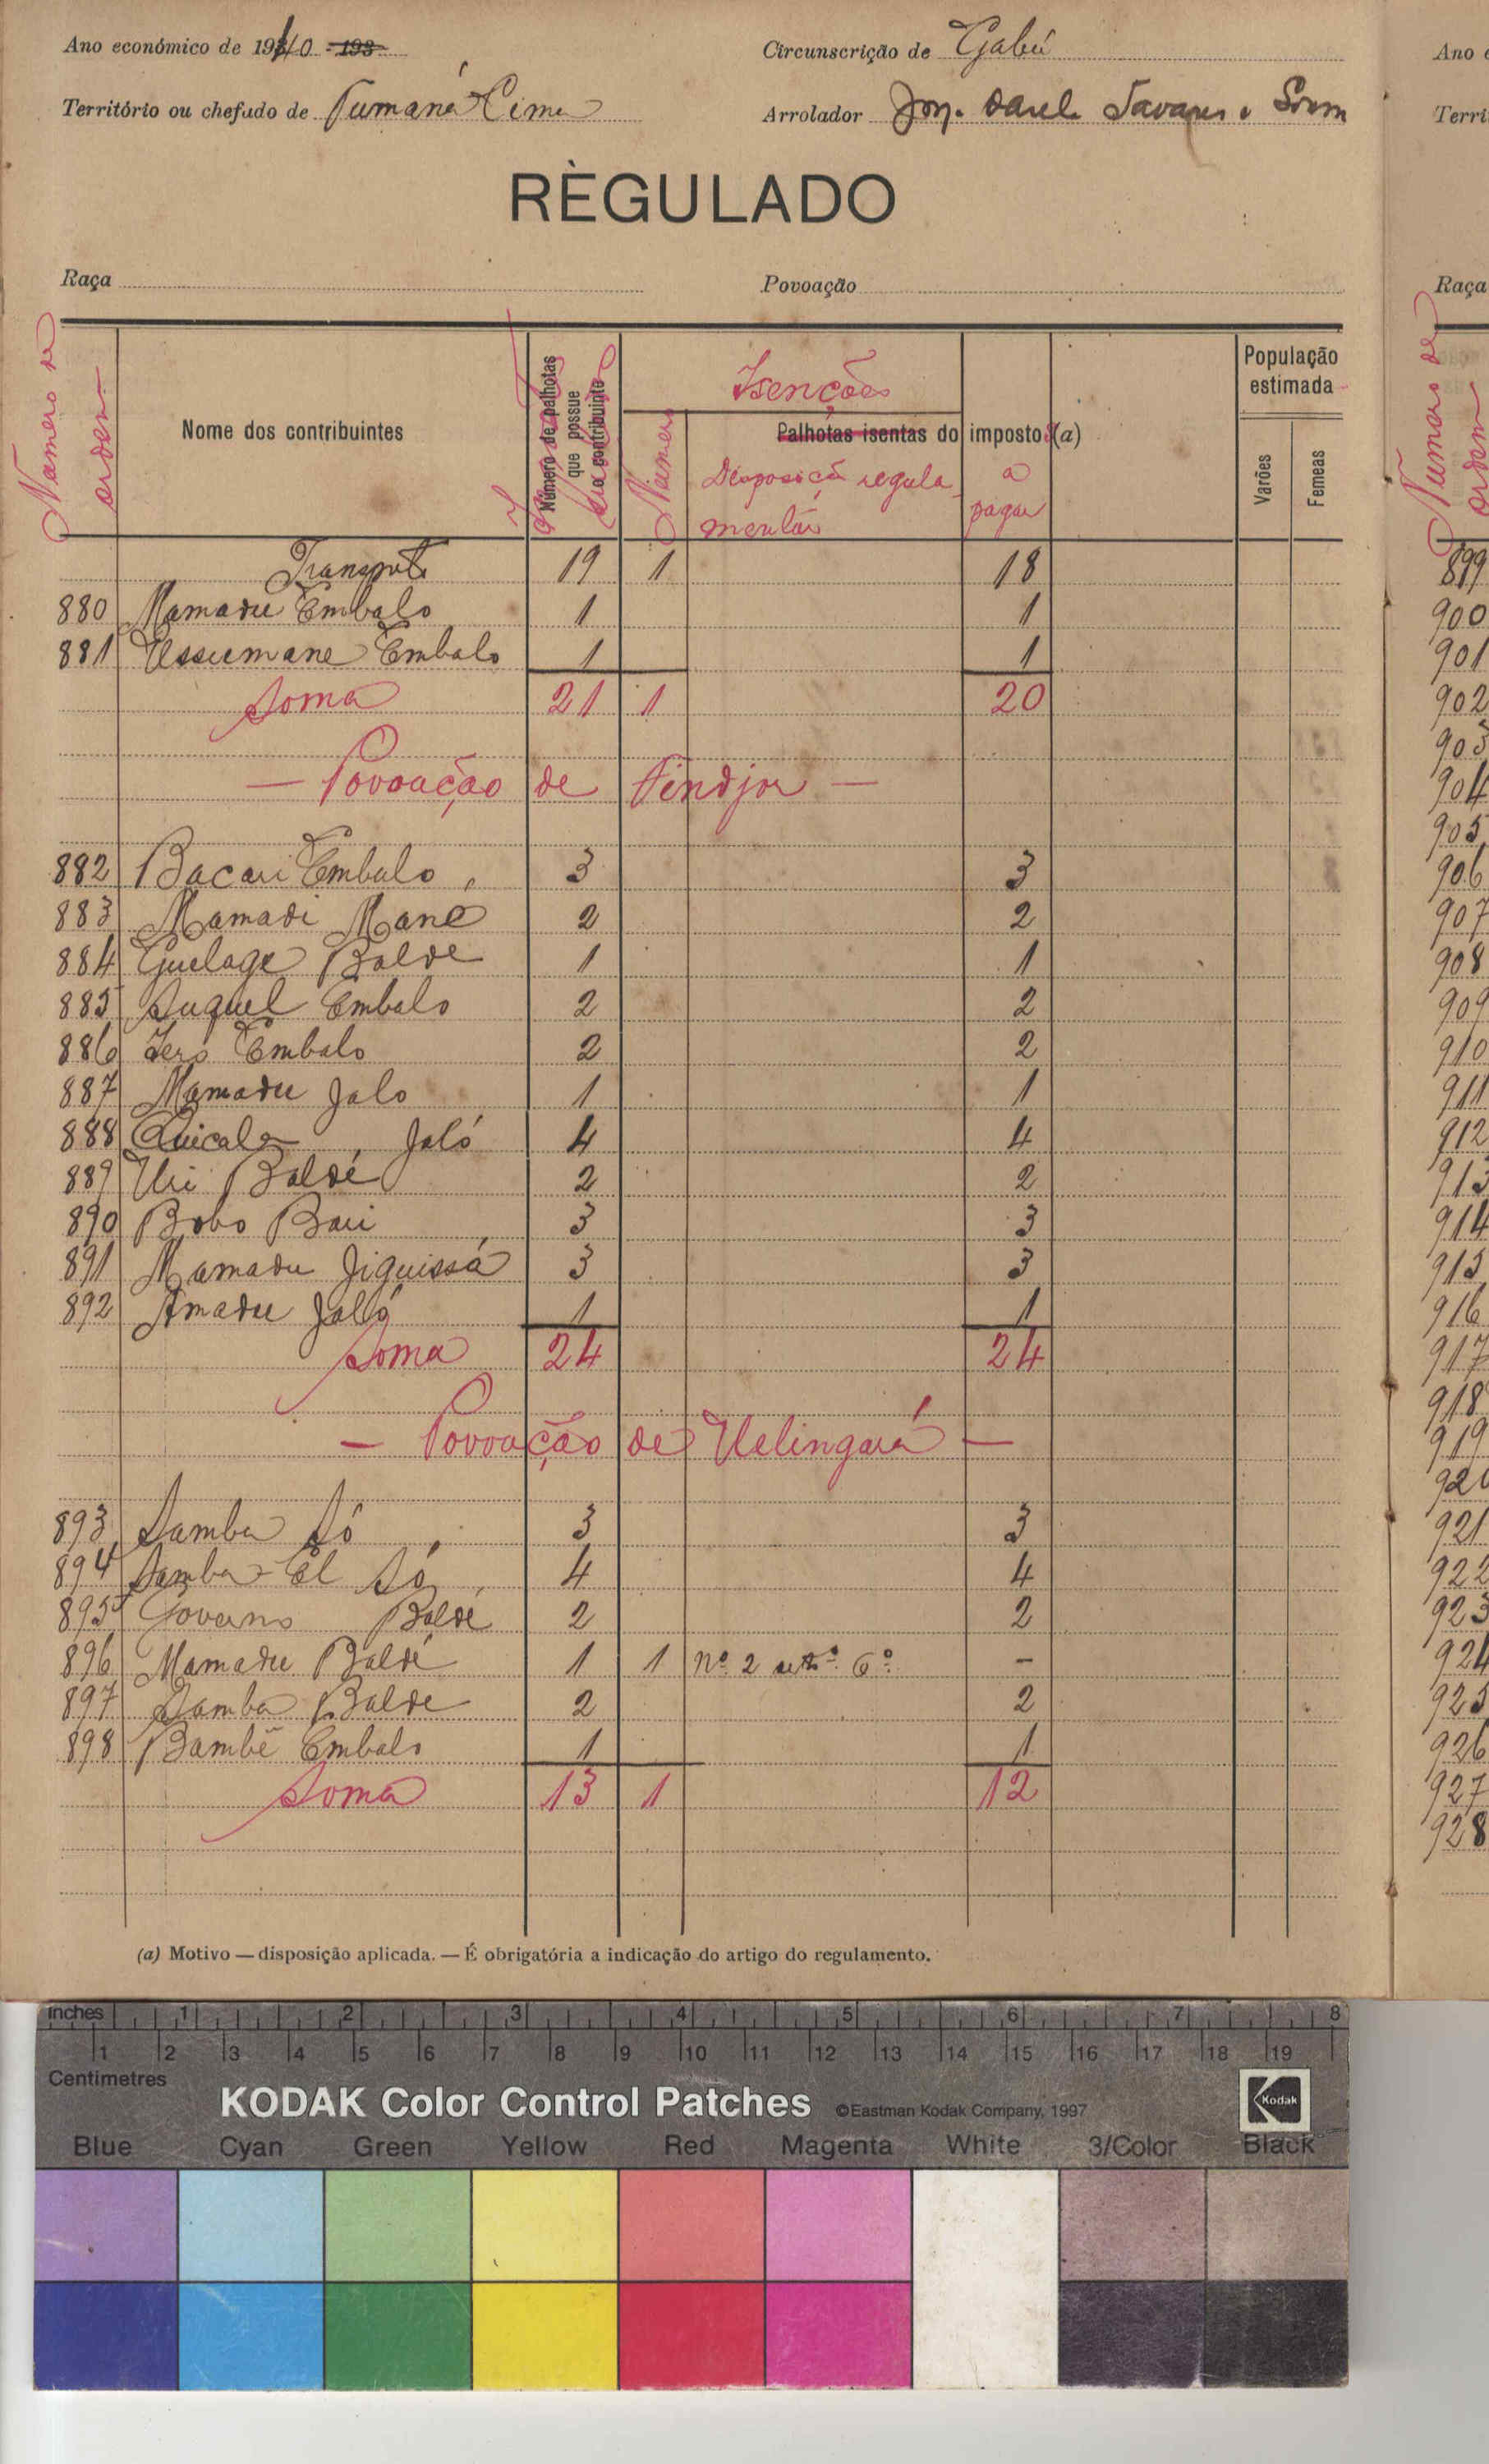 Ano económico de 1940 - 193
Circunscrição de Gabú
Território ou chefado de Tumaná Cima
Arrolador Tavares e
RÈGULADO
Raça
Povoação
Número de ordem
Nome dos contribuintes
Número de palhotas que possue o contribuinte
Isenções
Palhotas isentas do imposto (a)
Número
Disposição regulamentar
a pagar
População estimada
Varões
Femeas
Transporte 19 1 18
880 Mamadu Embalo 1 1
881 Ussumane Embalo 1 1
Soma 21 1 20
— Povoação de —
882 Bacari Embalo 3 3
883 Mamadi Mané 2 2
884 Guelage Balde 1 1
885 Suquel Embalo 2 2
886 Embalo 2 2
887 Mamadu Jalo 1 1
888 Jaló 4 4
889 Uri Baldé 2 2
890 Bobo Bari 3 3
891 Mamadu Jiguissá 3 3
892 Amadu Jalló 1 1
Soma 24 24
— Povoação de Velingará —
893 Samba Só 3 3
894 Samba-El Só 4 4
895 Governo Baldé 2 2
896 Mamadu Baldé 1 1 nº 2 6º -
897 Samba Balde 2 2
898 Bambé Embalo 1 1
Soma 13 1 12
(a) Motivo — disposição aplicada. — É obrigatória a indicação do artigo do regulamento.
Ano
Terri
Raça
Número de ordem
899
900
901
902
903
904
905
906
907
908
909
910
911
912
913
914
915
916
917
918
919
920
921
922
923
924
925
926
927
928
inches 1 2 3 4 5 6 7 8
1 2 3 4 5 6 7 8 9 10 11 12 13 14 15 16 17 18 19
Centimetres
KODAK Color Control Patches ©Eastman Kodak Company, 1997 Kodak
Blue Cyan Green Yellow Red Magenta White 3/Color Black